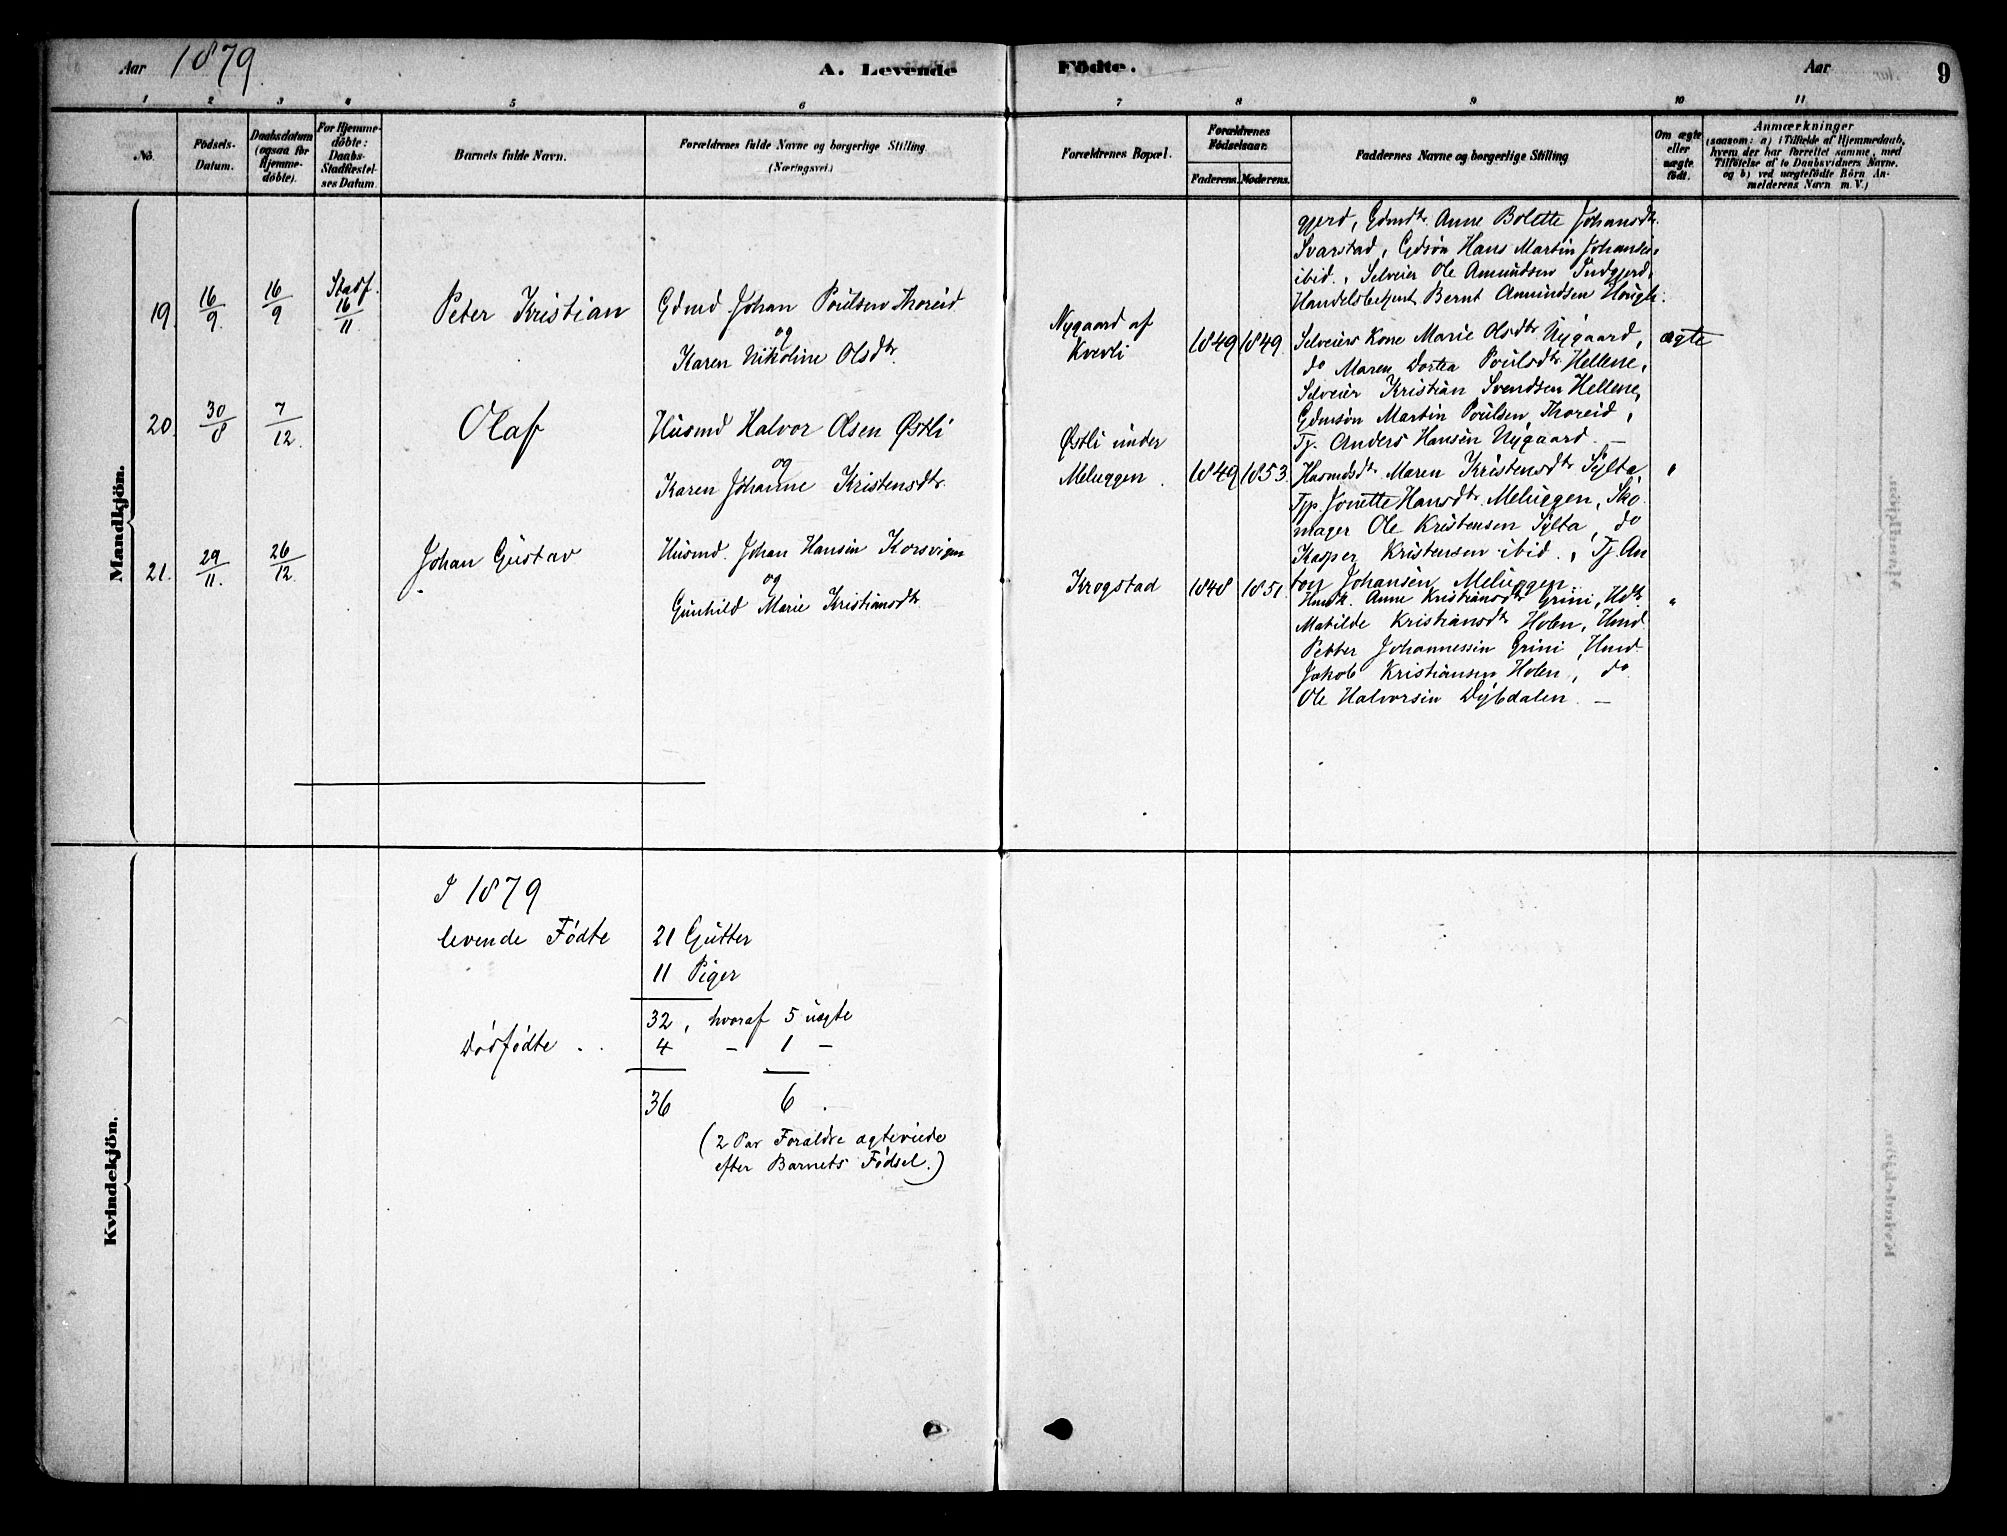 Aar 1879.
A. Levende Födte.
Aar
9
1 2 3 4 5 6 7 8 9 10 11
No.
Födsels-Datum.
Daabsdatum (ogsaa for Hjemme-döbte).
For Hjemme-döbte: Daabs-Stadfæstelses Datum.
Barnets fulde Navn.
Forældrenes fulde Navne og borgerlige Stilling (Næringsvei.)
Forældrenes Bopæl.
Forældrenes Födselsaar.
Faderens. Moderens.
Faddernes Navne og borgerlige Stilling
Om ægte eller uægte födt.
Anmærkninger
(saasom: a) i Tilfælde af Hjemmedaab,
hvem der har forrettet samme, med
Tilföielse af to Daabsvidners Navne,
og b) ved uægtefödte Börn An-
melderens Navn m. V.)
Mandkjön.
gjerd, Gdmdtr. Anne Bolette Johansdtr.
Svarstad, Gdsøn Hans Martin Johansen
ibid., Selveier Ole Amundsen Indgjerd,
Handelsbetjent Bernt Amundsen Hough.
19. 16/9. 16/9 Stadf. 16/11 Peter Kristian
Gdmd. Johan Poulsen Thoreid
og
Karen Nikoline Olsdtr.
Nygaard af
Kverli
1849 1849.
Selveiers Kone Marie Olsdtr. Nygaard,
do Maren Dortea Poulsdtr. Hellene,
Selveier Kristian Svendsen Hellene,
Gdmsøn Martin Poulsen Thoreid,
Tj. Anders Hansen Nygaard. —
ægte
20. 30/8 7/12. Olaf
Husmd Halvor Olsen Østli
og
Karen Johanne Kristensdtr.
Østli under
Meluggen.
1849 1853.
Husmdsdtr. Maren Kristensdtr. Sylta,
Tjp. Jonette Hansdtr. Meluggen, Sko
mager Ole Kristensen Sylta, do
Kasper Kristensen ibid., Tj. An
ton Johansen Meluggen
"
21. 29/11. 26/12. Johan Gustav
Husmd. Johan Hansen Korsvigen
og
Gunhild Marie Kristiansdtr.
Krogstad
1848 1851.
Husmk. Anne Kristiansdtr. Grini, Hdtr.
Matilde Kristiansdtr. Holen, Husmd.
Petter Johannessen Grini, Husmd.
Jakob Kristiansen Holen, do
Ole Halvorsen Dybdalen. —
"
Kvindekjön.
I 1879
levende Fødte 21 Gutter
11 Piger
32, hvoraf 5 uægte
Dødfødte . . 4 — 1 —
36 6.
(2 Par Forældre ægteviede
efter Barnets Fødsel.)